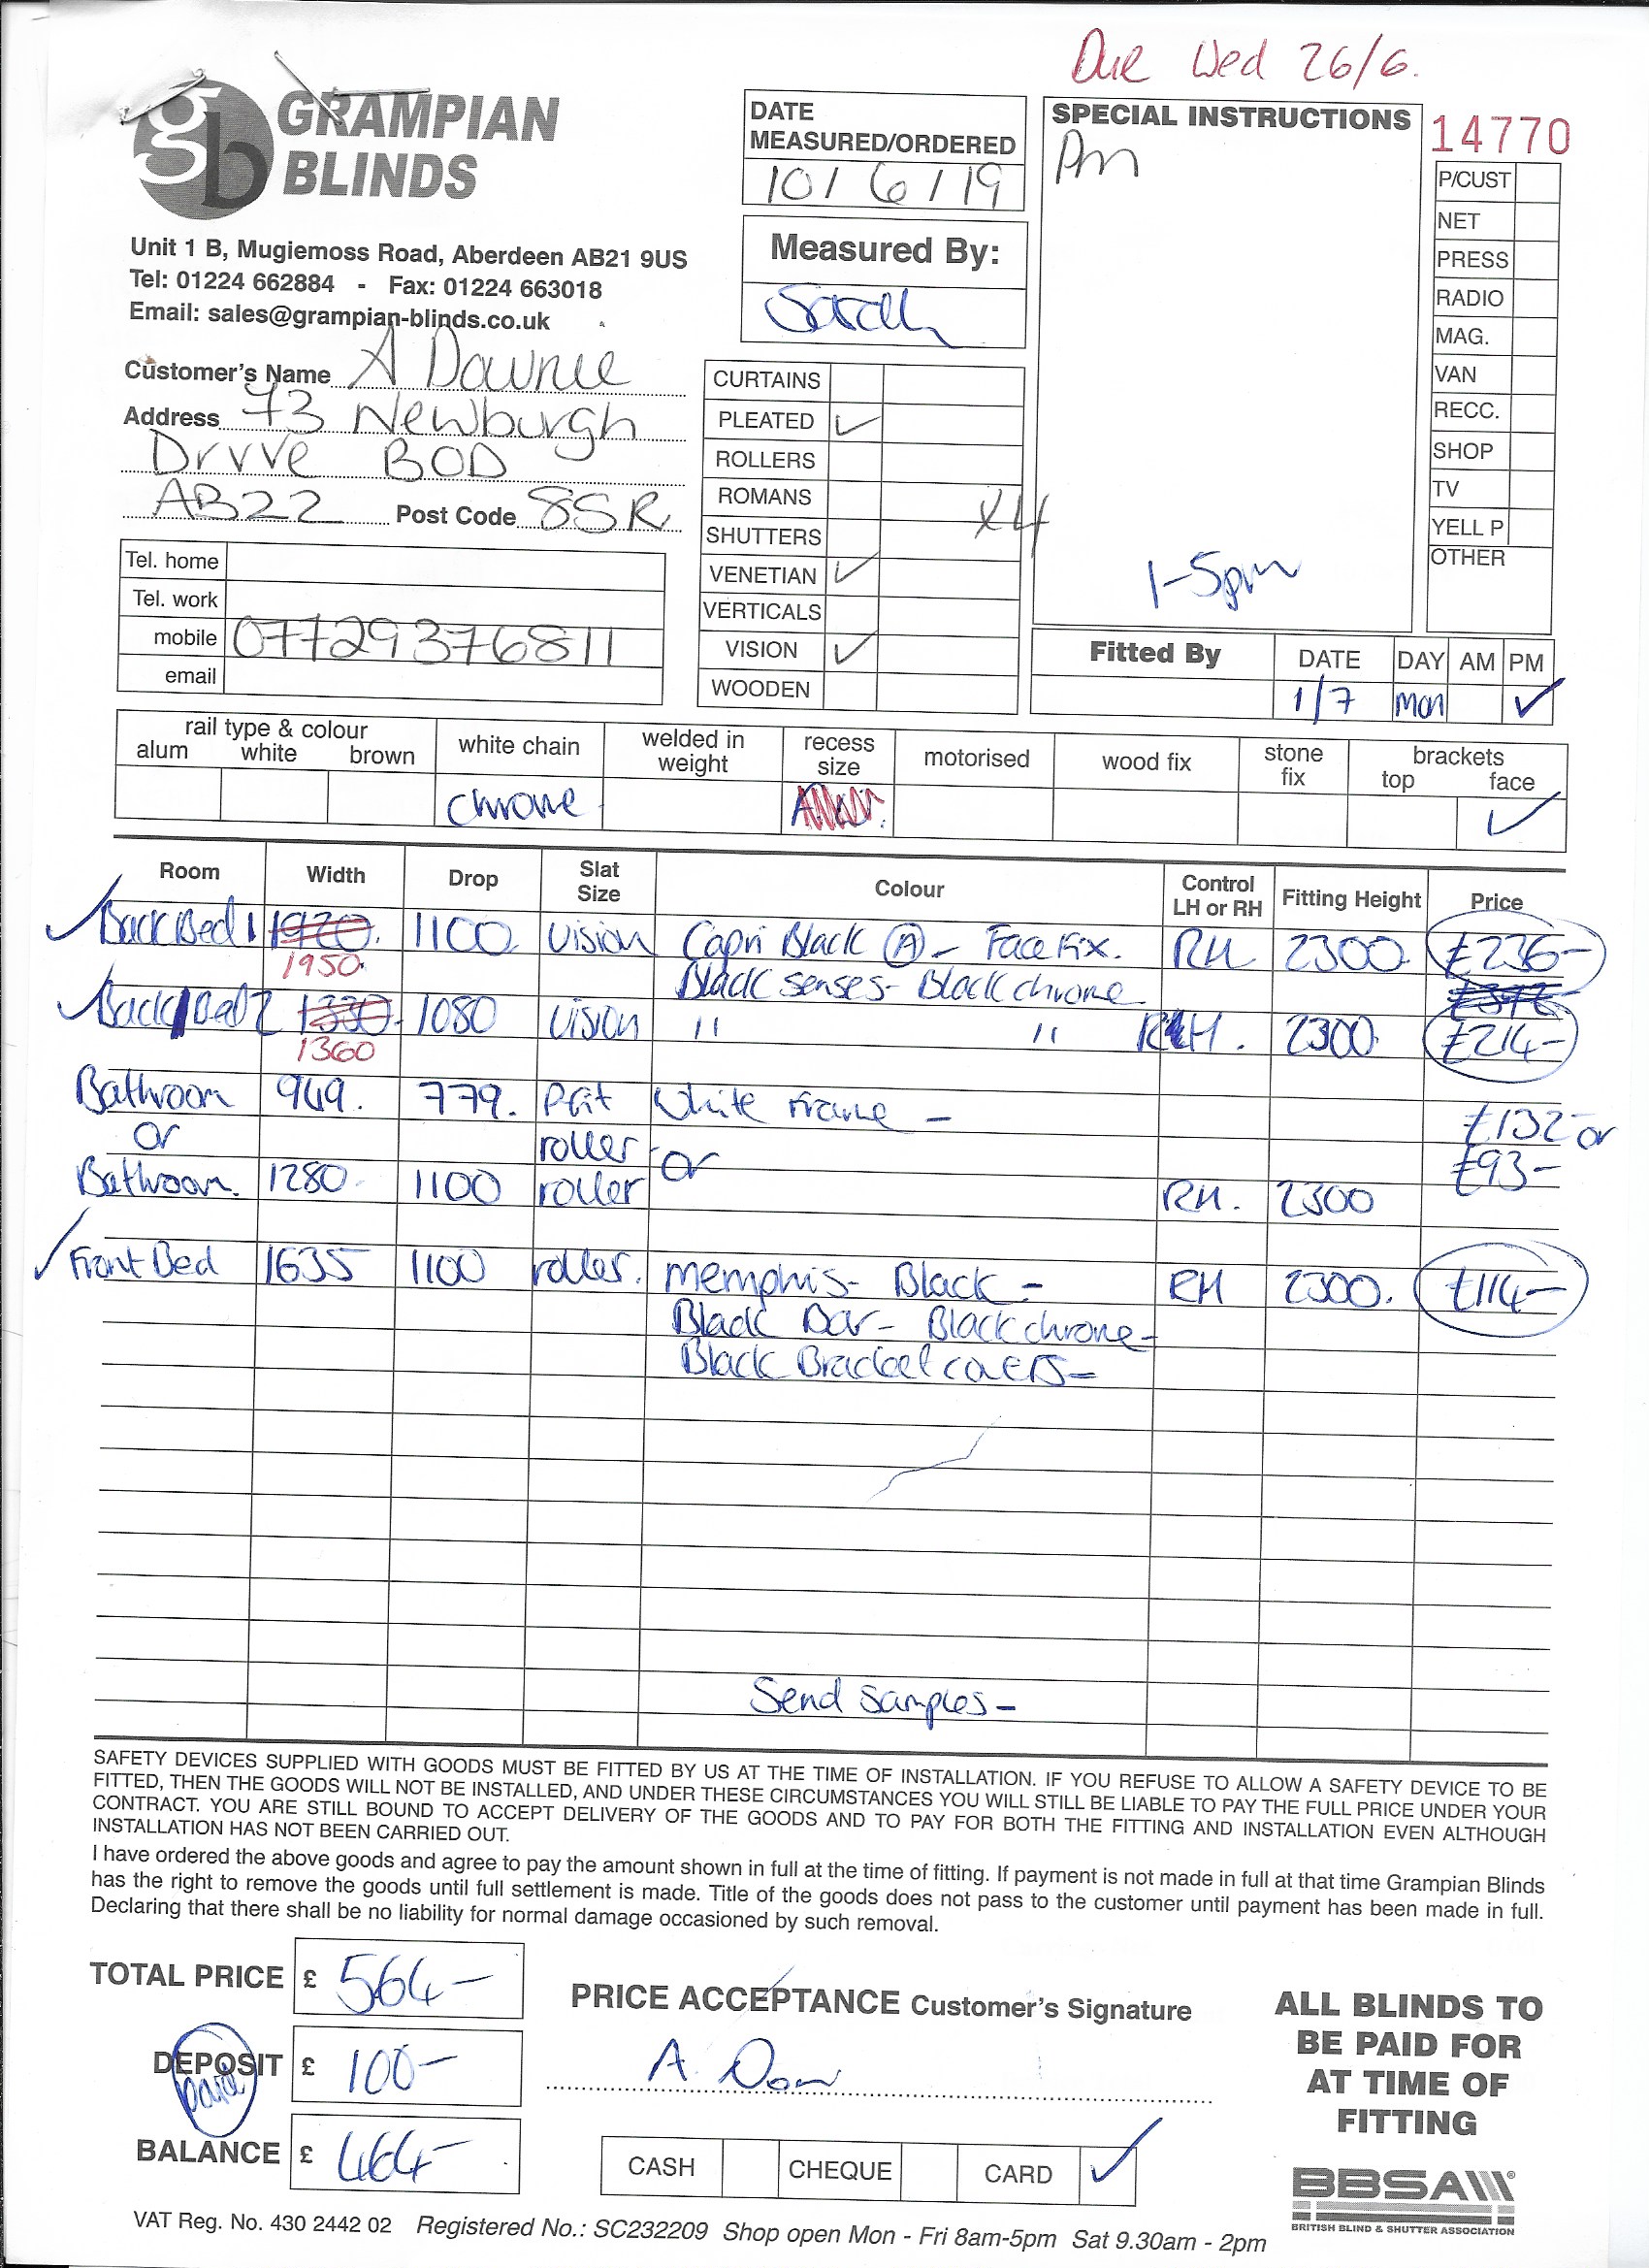 Due Wed 26/6.
GRAMPIAN
BLINDS
Unit 1 B, Mugiemoss Road, Aberdeen AB21 9US
Tel: 01224 662884 - Fax: 01224 663018
Email: sales@grampian-blinds.co.uk
DATE
MEASURED/ORDERED
10/6/19
Measured By:
Sarah
SPECIAL INSTRUCTIONS
Pm
x4
1-5pm
14770
P/CUST
NET
PRESS
RADIO
MAG.
VAN
RECC.
SHOP
TV
YELL P
OTHER
Customer's Name A Downie
Address 73 Newburgh
Drvve BOD
AB22 Post Code 8SR
Tel. home
Tel. work
mobile 07729376811
email
CURTAINS
PLEATED ✓
ROLLERS
ROMANS
SHUTTERS
VENETIAN ✓
VERTICALS
VISION ✓
WOODEN
Fitted By DATE DAY AM PM
1/7 Mon ✓
rail type & colour
alum white brown
white chain
welded in weight
recess size
motorised
wood fix
stone fix
brackets
top face
chrome ✓
Room Width Drop Slat Size Colour Control LH or RH Fitting Height Price
✓ Back Bed 1 1920. 1100 vision Capri Black A - Face Fix. RH 2300. £236-
1950. Black senses- Black chrome
✓ Back Bed 2 1330. 1080 vision " " RH. 2300. £214-
1360
Bathroom 949. 779. Pfit White Frame - £132 or
or roller or £93-
Bathroom. 1280. 1100 roller RH. 2300
✓ Front Bed 1635 1100 roller. Memphis- Black - RH 2300. £114-
Black Bar- Black chrome-
Black Bracket covers-
Send samples-
SAFETY DEVICES SUPPLIED WITH GOODS MUST BE FITTED BY US AT THE TIME OF INSTALLATION. IF YOU REFUSE TO ALLOW A SAFETY DEVICE TO BE
FITTED, THEN THE GOODS WILL NOT BE INSTALLED, AND UNDER THESE CIRCUMSTANCES YOU WILL STILL BE LIABLE TO PAY THE FULL PRICE UNDER YOUR
CONTRACT. YOU ARE STILL BOUND TO ACCEPT DELIVERY OF THE GOODS AND TO PAY FOR BOTH THE FITTING AND INSTALLATION EVEN ALTHOUGH
INSTALLATION HAS NOT BEEN CARRIED OUT.
I have ordered the above goods and agree to pay the amount shown in full at the time of fitting. If payment is not made in full at that time Grampian Blinds
has the right to remove the goods until full settlement is made. Title of the goods does not pass to the customer until payment has been made in full.
Declaring that there shall be no liability for normal damage occasioned by such removal.
TOTAL PRICE £ 564-
DEPOSIT £ 100-
paid
BALANCE £ 464-
PRICE ACCEPTANCE Customer's Signature
A. Dow
CASH CHEQUE CARD ✓
ALL BLINDS TO
BE PAID FOR
AT TIME OF
FITTING
BBSA
BRITISH BLIND & SHUTTER ASSOCIATION
VAT Reg. No. 430 2442 02 Registered No.: SC232209 Shop open Mon - Fri 8am-5pm Sat 9.30am - 2pm